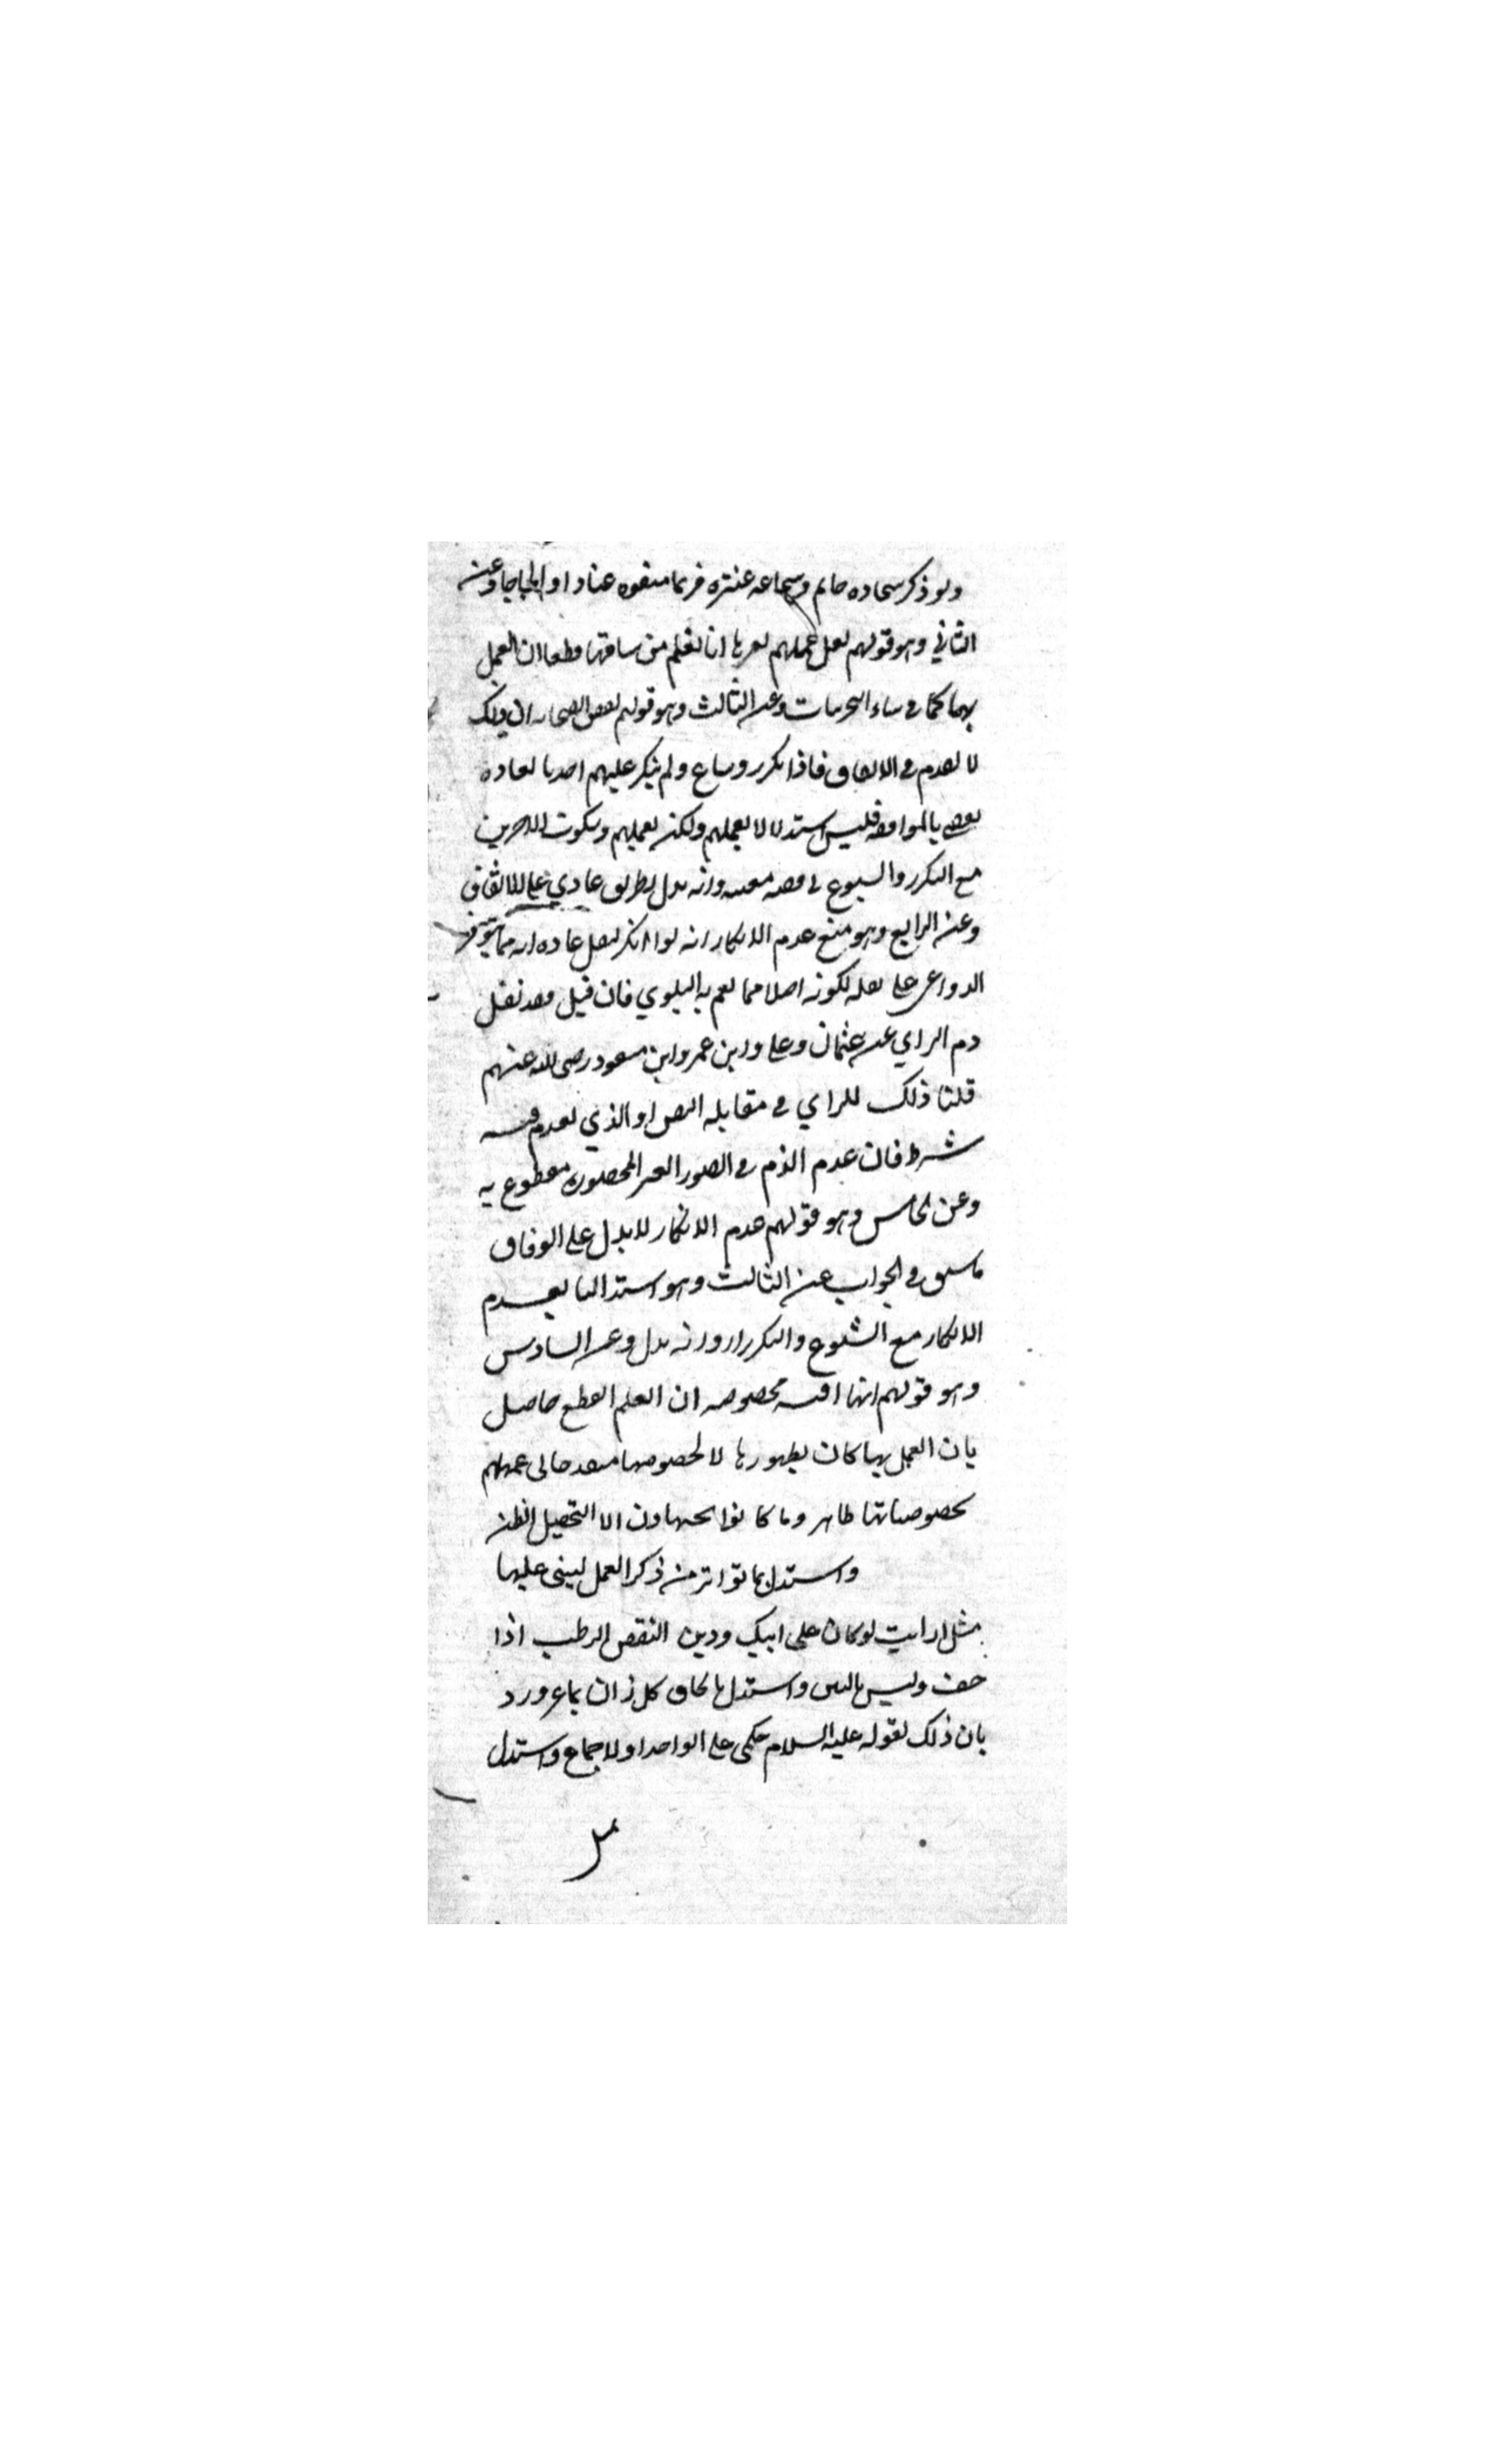 ولو ذكر سخاوه حاتم وشجاعه عنتره فربما منعوه عنادا او لجاجا وعن
الثاني وهو قولهم لعل عملهم بغيرها انا نعلم من سياقها قطعا ان العمل
بها كما في سائر التجربيات وعن الثالث وهو قولهم بعض الصحابه ان ذلك
لا يقدح في الاتفاق فاذا تكرر وشاع ولم ينكر عليهم احد فالعاده
تقضي بالموافقه فليس استدلالا بعملهم ولكن بعملهم وسكوت الاخرين
مع التكرر والشيوع في قصه معينه وانه يدل بطريق عادي على الاتفاق
وعن الرابع وهو منع عدم الانكار انه لو انكر لنقل عاده انه مما يتوفر
الدواعي على نقله لكونه اصلا مما تعم به البلوي فان قيل فقد نقل
ذم الراي عن عثمان وعلي وابن عمر وابن مسعود رضي الله عنهم
قلنا ذلك للراي في مقابله النص او الذي يعدم فيه
شرط فان عدم الذم في الصور الغير المحصوره مقطوع به
وعن الخامس وهو قولهم عدم الانكار لا يدل على الوفاق
ما سبق في الجواب عن الثالث وهو استدلالنا بعدم
الانكار مع الشيوع والتكرار وانه يدل وعن السادس
وهو قولهم انها اقيسه مخصوصه ان العلم القطع حاصل
بان العمل بها كان بظهورها لا لخصوصها عملهم
بخصوصياتها ظاهر وما كانوا يجتهدون الا لتحصيل الظن
واستدل بما تواتر من ذكر العمل ليبنى عليها
مثل ارايت لو كان على ابيك ودين اينقص الرطب اذا
جف وليس بالبين واستدل بالحاق كل زان بماعز ورد
بان ذلك لقوله عليه السلام حكمي على الواحد او للاجماع واستدل
بمثل